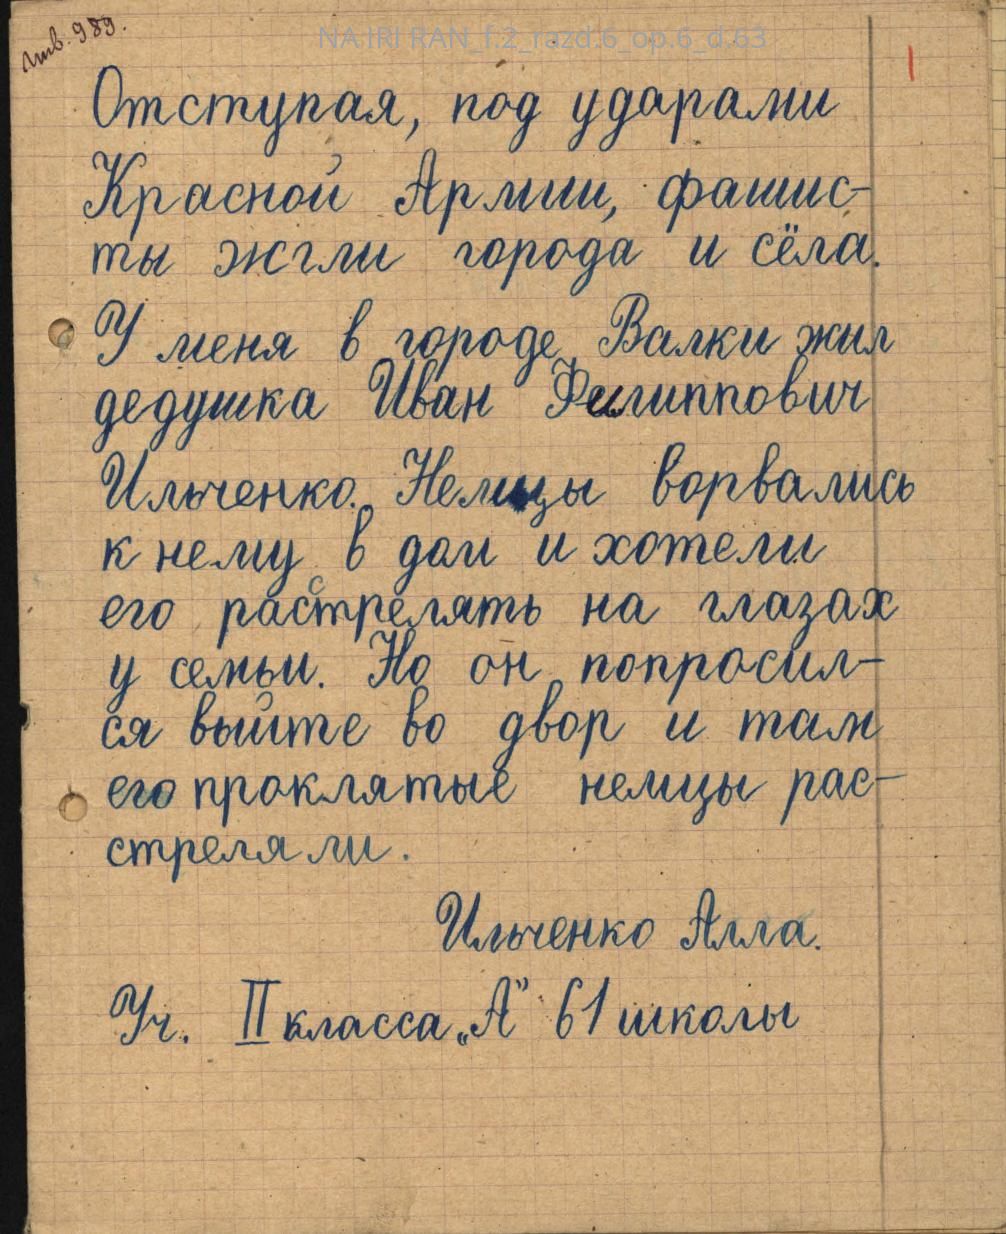 Инв. 989.
NA IRI RAN_f.2_razd.6_op.6_d.63
1
Отступая, под ударами
Красной Армии, фашис-
ты жгли города и сёла.
У меня в городе Валки жил
дедушка Иван Филиппович
Ильченко. Немцы ворвались
к нему в дом и хотели
его расстрелять на глазах
у семьи. Но он попросил-
ся выйте во двор и там
его проклятые немцы рас-
стреляли.
Ильченко Алла.
Уч. II класса „А" 61 школы